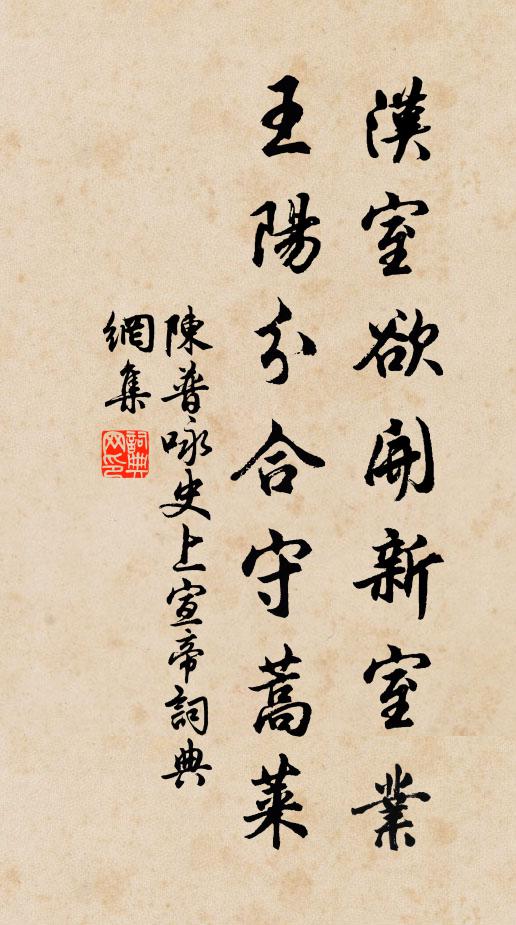 漢室欲開新室業
王陽分合守蒿萊
陳普咏史上宣帝詞典
網集
詞典
网印